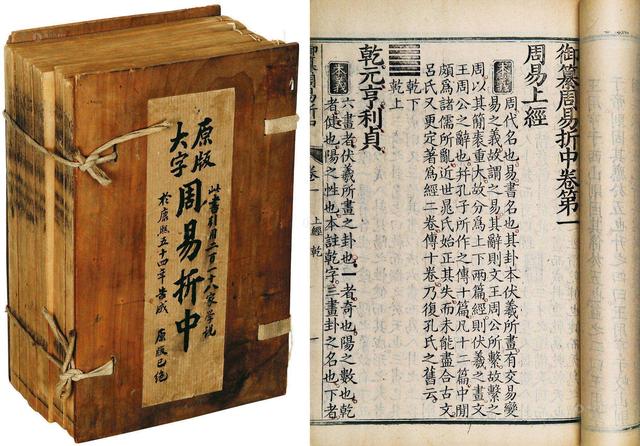 原版
大字
周易折中
此書引用二百一十八家學說
於康熙五十四年告成 原版已絕
御纂周易折中卷第一
周易上經
本義 周代名也易書名也其卦本伏羲所畫有交易變
易之義故謂之易其辭則文王周公所繫故繫之
周以其簡袠重大故分爲上下兩篇經則伏羲之畫文
王周公之辭也并孔子所作之傳十篇凡十二篇中間
頗爲諸儒所亂近世晁氏始正其失而未能盡合古文
呂氏又更定著爲經二卷傳十卷乃復孔氏之舊云
乾下
乾上
乾元亨利貞
本義 六畫者伏羲所畫之卦也一者奇也陽之數也乾
者健也陽之性也本註乾字三畫卦之名也下者
御纂周易折中 卷一 上經 乾